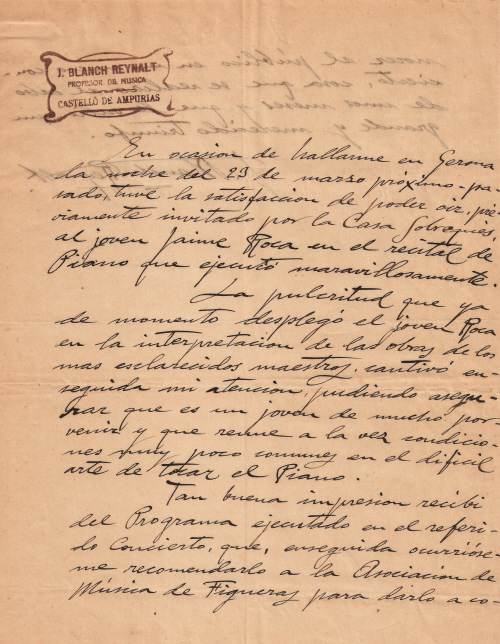 J. BLANCH REYNALT
PROFESOR DE MUSICA
CASTELLÓ DE AMPURIAS
En ocasion de hallarme en Gerona
la noche del 23 de marzo próximo-pa-
sado, tuve la satisfaccion de poder oir, pre-
viamente invitado por la Casa Sobrequés,
al joven Jaime Roca en el recital de
Piano que ejecutó maravillosamente.
La pulcritud que ya
de momento desplegó el joven Roca
en la interpretacion de las obras de los
mas esclarecidos maestros, cautivó en-
seguida mi atencion, pudiendo asegu-
rar que es un joven de mucho por-
venir y que reune a la vez condicio-
nes muy poco comunes en el dificil
arte de tocar el Piano.
Tan buena impresion recibi
del Programa ejecutado en el referi-
do Concierto, que, enseguida ocurrióse-
me recomendarlo a la Asociacion de
Música de Figueras para darlo a co-